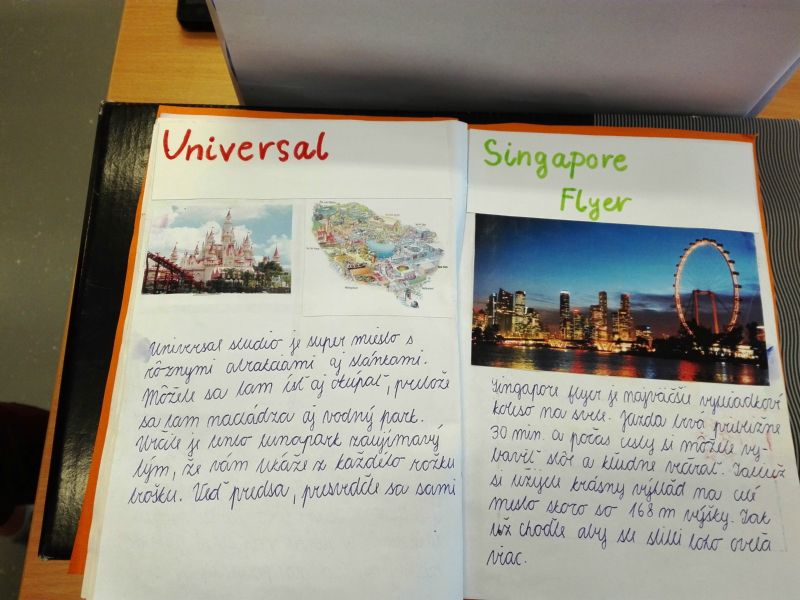 Universal
Universal studio je super miesto s
rôznymi atrakciami aj stánkami.
Môžete sa tam ísť aj okúpať, pretože
sa tam nachádza aj vodný park.
Určite je tento lunapark zaujímavý
tým, že vám ukáže z každého rožku
trošku. Veď predsa, presvedčte sa sami
Singapore
Flyer
Singapore flyer je najväčšie vyhliadkové
koleso na svete. Jazda trva približne
30 min. a počas cesty si môžete vy-
baviť stôl a kľudne večerať. Taktiež
si užijete krásny výhľad na celé
mesto skoro so 168 m výšky. Tak
už choďte aby ste stihli toho oveľa
viac.